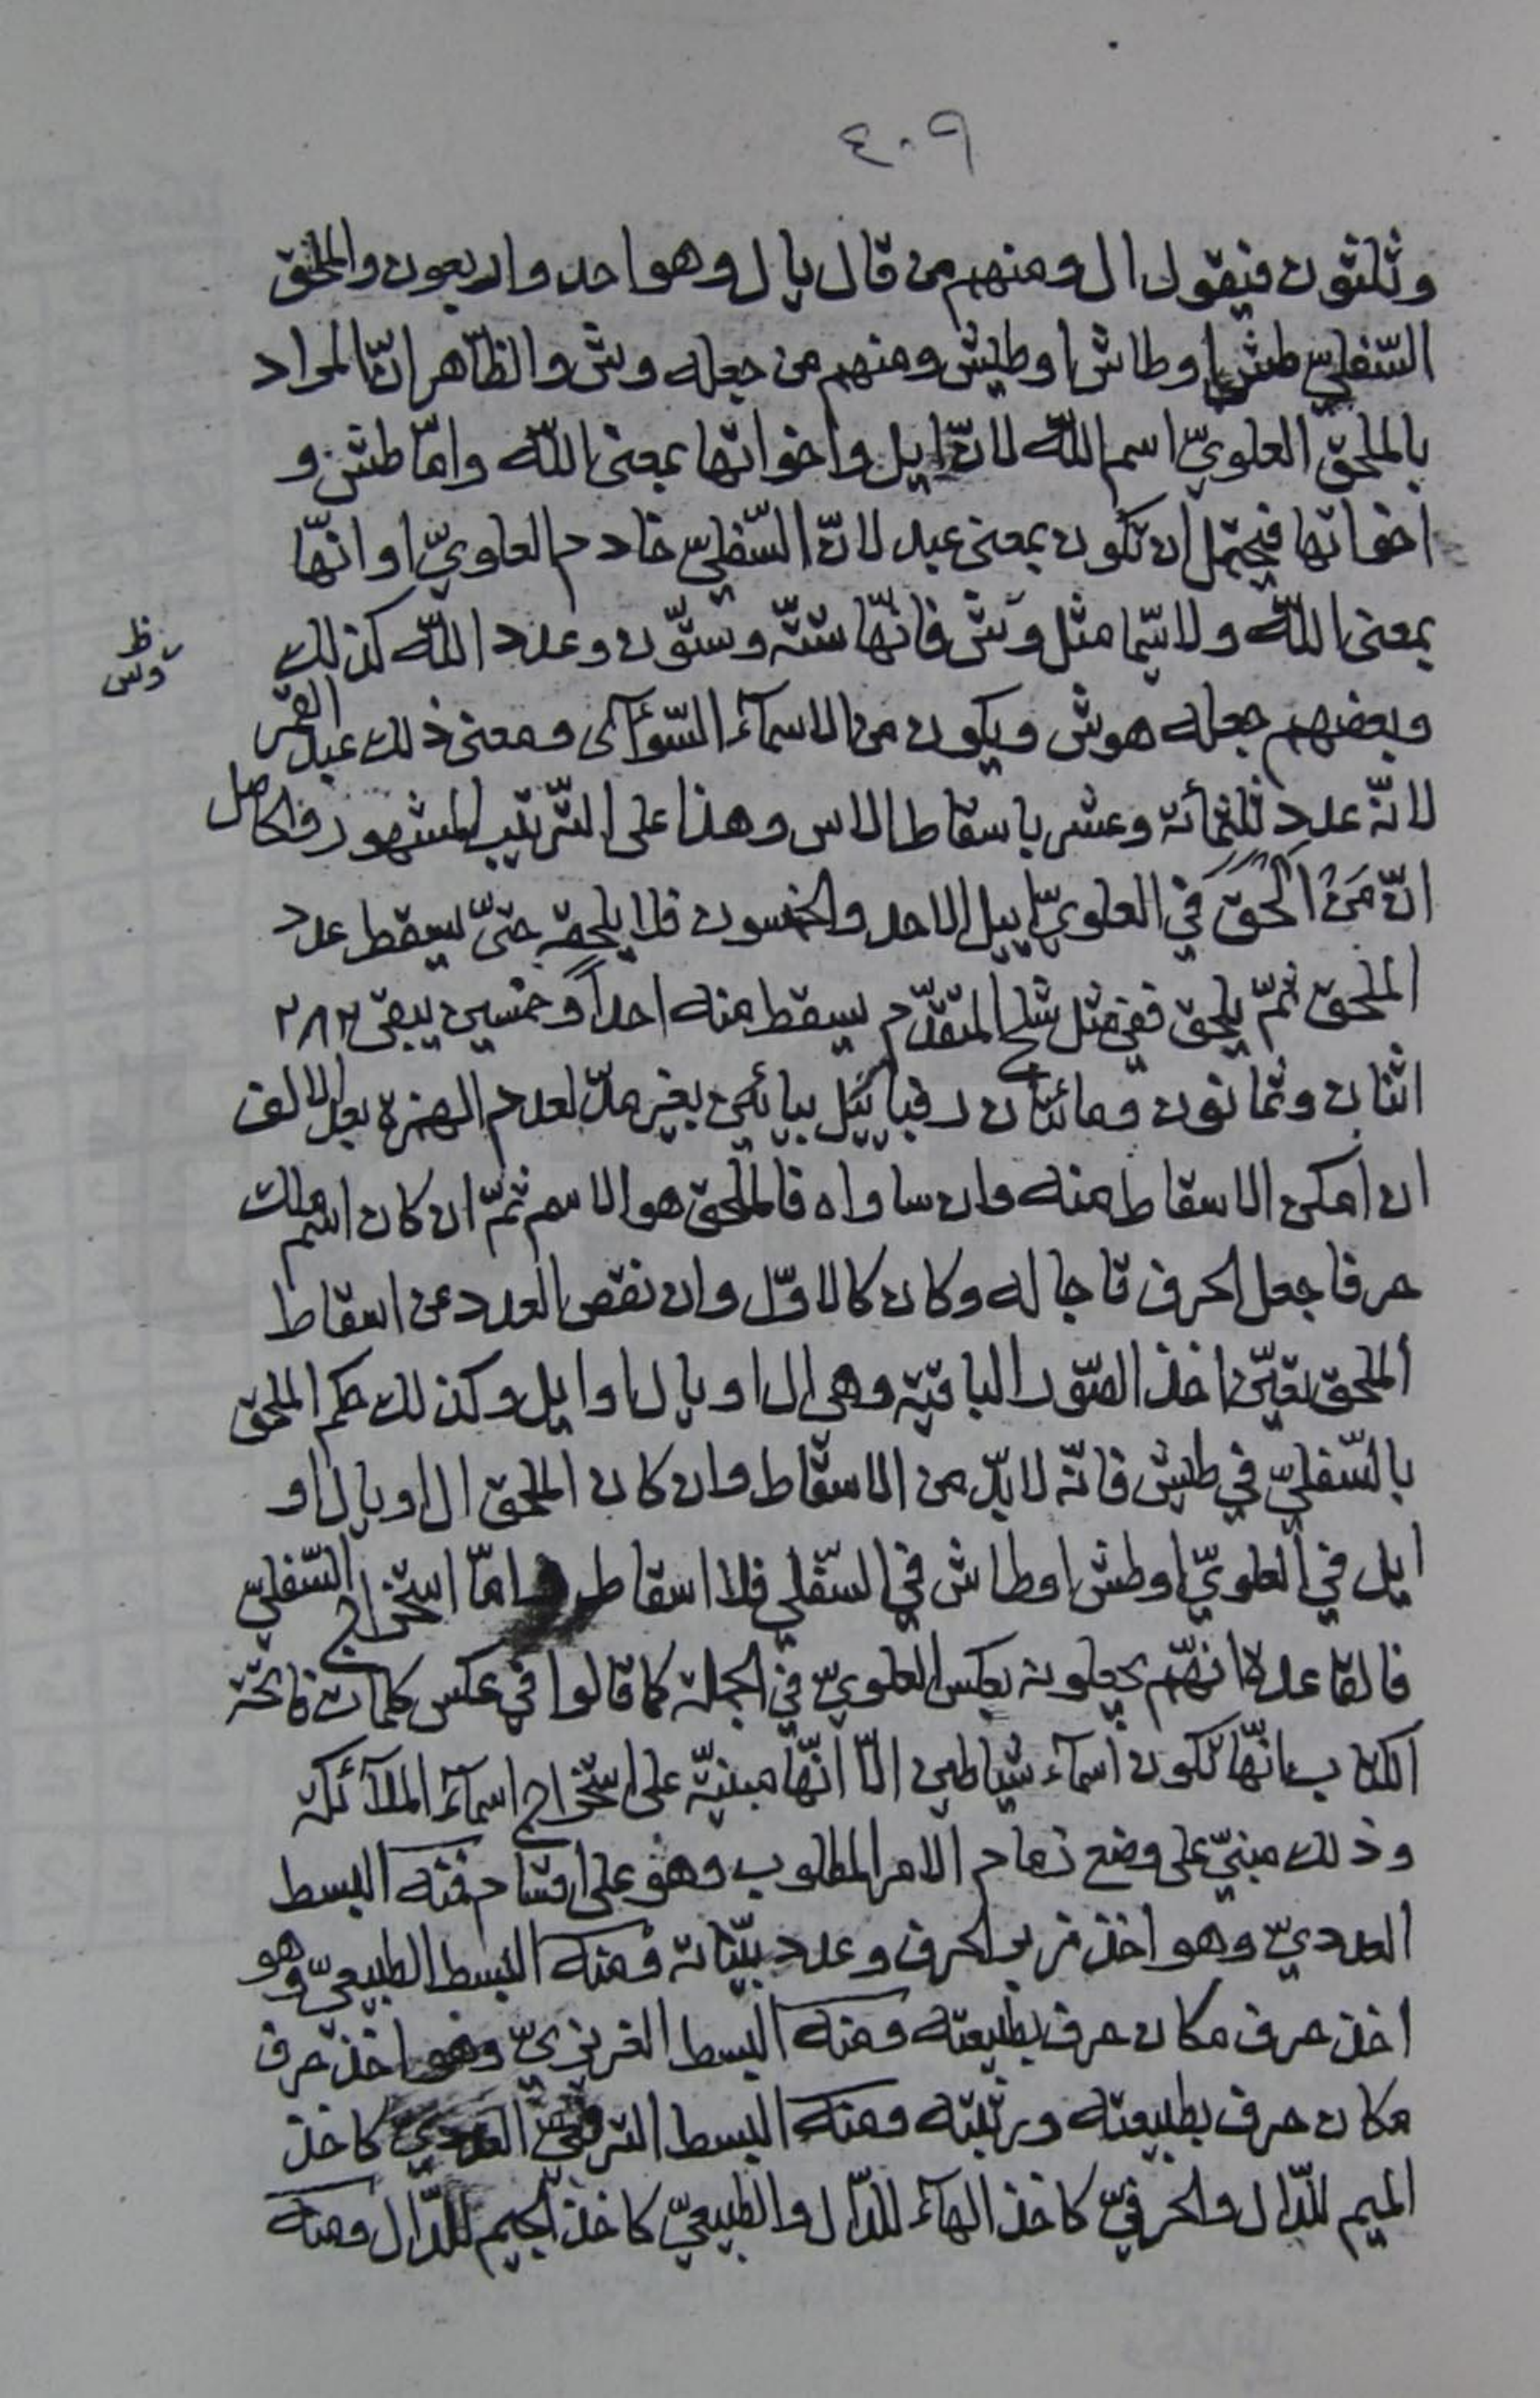 ٤٠٩
وثلثون فيقول ال ومنهم من قال يال وهو احد واربعون والملحق
السّفليّ طش او طاش او طيش ومنهم من جعله وش والظّاهر انّ المراد
بالملحق العلويّ اسم اللّه لانّ ايل واخواتها بمعنى اللّه وامّا طش و
اخواتها فيحتمل ان تكون بمعنى عبد لانّ السّفليّ خادم العلويّ او انّها
بمعنى اللّه ولا سيّما مثل وش فانّها ستّة وستّون وعدد اللّه كذلك
وس ظ
وبعضهم جعله هوش ويكون من الاسمآء السّوآى ومعنى ذلك عبد القمر
لانّه عدد ثلثمائة وعشر باسقاط الاس وهذا على التّرتيب المشهور والحاصل
انّ مَنْ الحق في العلويّ اييل الاحد والخمسون فلا يلحقه حتّى يسقط عدد
الملحق ثمّ يلحق ففي مثل شلج المتقدّم يسقط منه احداً وخمسين يبقى ٢٨٢
اثنان وثمانون ومائتان رفبائيل بيائين بغير مدّ لعدم الهمزة بعد الالف
ان امكن الاسقاط منه وان ساواه فالملحق هو الاسم ثمّ ان كان اسم ملك
حرفا جعل الحرف تاجا له وكان كالاوّل وان نقص العدد عن اسقاط
الملحق تعيّن اخذ الصّور الباقية وهي ال او يال او ايل وكذلك حكم الملحق
بالسّفليّ في طيش فانّه لا بدّ من الاسقاط وان كان الملحق ال او يال او
ايل في العلويّ او طش او طاش في السّفلي فلا اسقاط وامّا استخراج السّفليّ
فالقاعدة انّهم يجعلونه بعكس العلويّ في الجملة كما قالوا في عكس كلمات فاتحة
الكتاب بانّها تكون اسمآء شياطين الّا انّها مبنيّة على استخراج اسمآء الملآئكة
وذلك مبنيّ على وضع زمام الامر المطلوب وهو على اقسام فمنه البسط
العدديّ وهو اخذ زبر الحرف وعدد بيّناته ومنه البسط الطبيعيّ وهو
اخذ حرف مكان حرف بطبيعته ومنه البسط الغريزيّ وهو اخذ حرف
مكان حرف بطبيعته ورتبته ومنه البسط التّرفّعيّ العدديّ كاخذ
الميم للدّال والحرفيّ كاخذ الهآء للدّال والطبيعيّ كاخذ الجيم للدّال ومنه